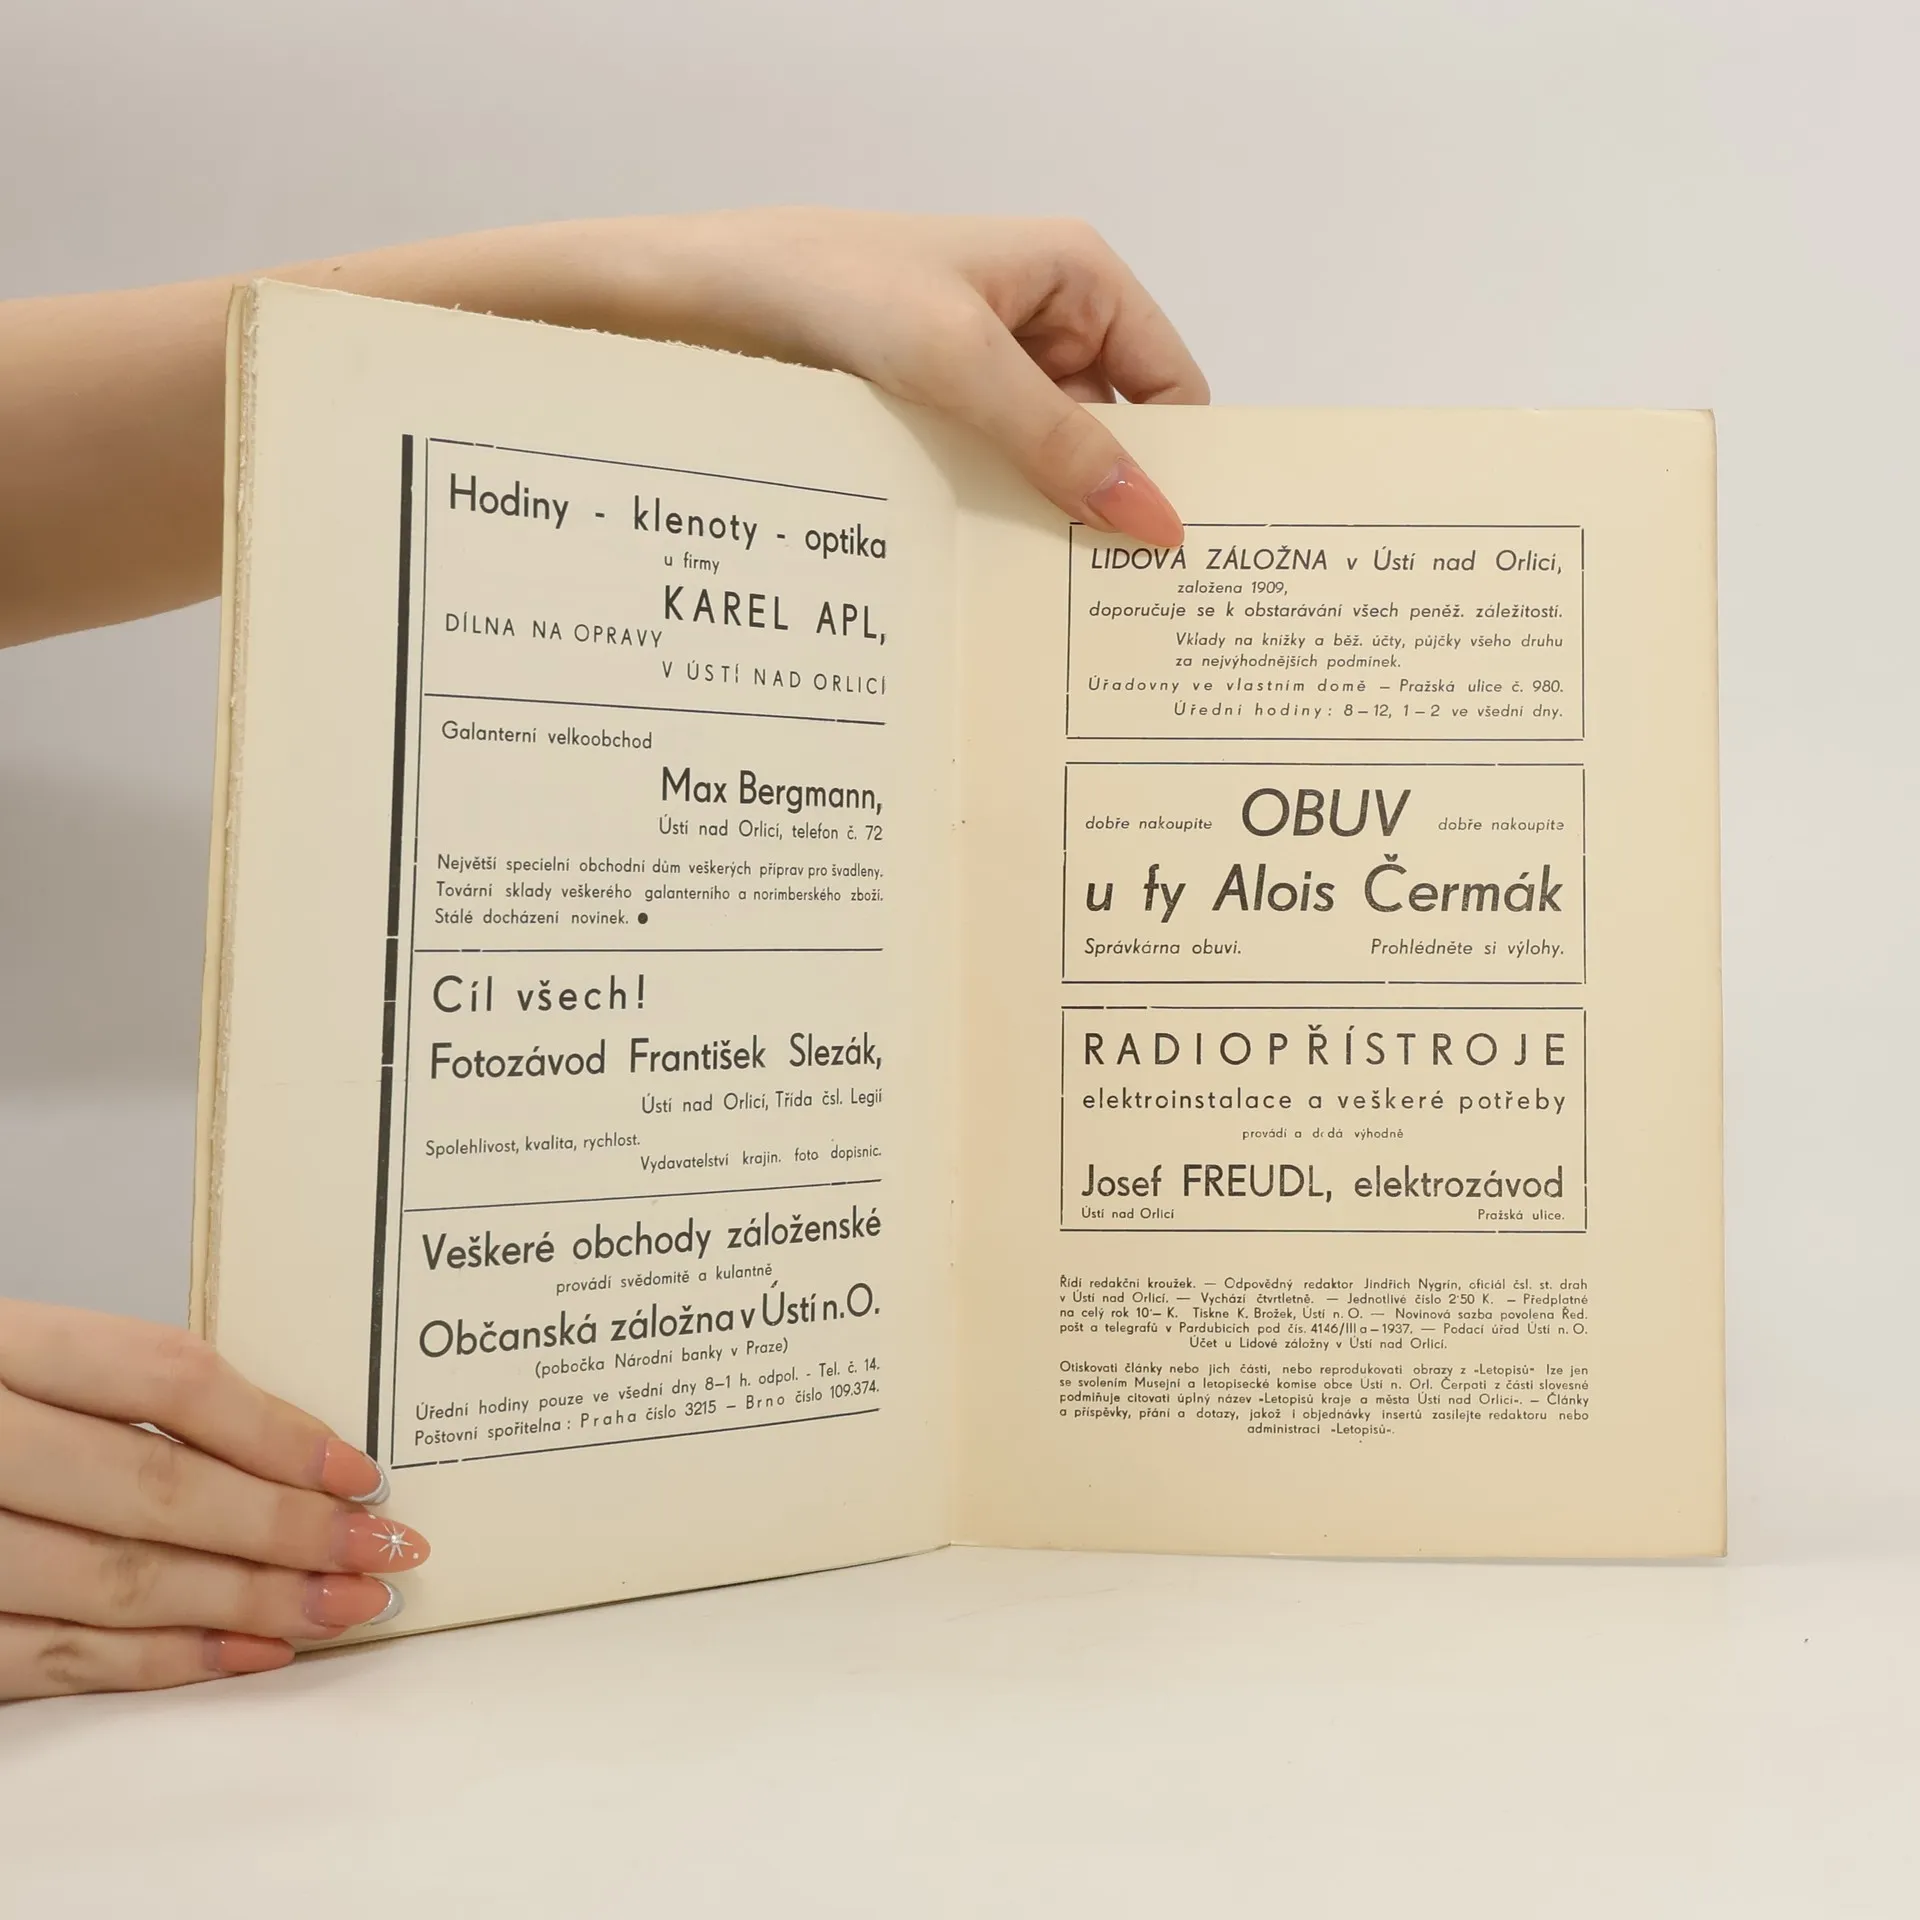 Hodiny - klenoty - optika
u firmy
KAREL APL,
DÍLNA NA OPRAVY
V ÚSTÍ NAD ORLICÍ
Galanterní velkoobchod
Max Bergmann,
Ústí nad Orlicí, telefon č. 72
Největší specielní obchodní dům veškerých příprav pro švadleny.
Tovární sklady veškerého galanterního a norimberského zboží.
Stálé docházení novinek. ●
Cíl všech!
Fotozávod František Slezák,
Ústí nad Orlicí, Třída čsl. Legií
Spolehlivost, kvalita, rychlost.
Vydavatelství krajin. foto dopisnic.
Veškeré obchody záloženské
provádí svědomitě a kulantně
Občanská záložna v Ústí n. O.
(pobočka Národní banky v Praze)
Úřední hodiny pouze ve všední dny 8–1 h. odpol. - Tel. č. 14.
Poštovní spořitelna: Praha číslo 3215 – Brno číslo 109.374.
LIDOVÁ ZÁLOŽNA v Ústí nad Orlicí,
založena 1909,
doporučuje se k obstarávání všech peněž. záležitostí.
Vklady na knížky a běž. účty, půjčky všeho druhu
za nejvýhodnějších podmínek.
Úřadovny ve vlastním domě – Pražská ulice č. 980.
Úřední hodiny: 8–12, 1–2 ve všední dny.
dobře nakoupíte OBUV dobře nakoupíte
u fy Alois Čermák
Správkárna obuvi. Prohlédněte si výlohy.
RADIOPŘÍSTROJE
elektroinstalace a veškeré potřeby
provádí a dodá výhodně
Josef FREUDL, elektrozávod
Ústí nad Orlicí Pražská ulice.
Řídí redakční kroužek. — Odpovědný redaktor Jindřich Nygrin, oficiál čsl. st. drah
v Ústí nad Orlicí. — Vychází čtvrtletně. — Jednotlivé číslo 2·50 K. — Předplatné
na celý rok 10·— K. Tiskne K. Brožek, Ústí n. O. — Novinová sazba povolena Řed.
pošt a telegrafů v Pardubicích pod čís. 4146/III a–1937. — Podací úřad Ústí n. O.
Účet u Lidové záložny v Ústí nad Orlicí.
Otiskovati články nebo jich části, nebo reprodukovati obrazy z »Letopisů« lze jen
se svolením Musejní a letopisecké komise obce Ústí n. Orl. Čerpati z části slovesné
podmiňuje citovati úplný název »Letopisů kraje a města Ústí nad Orlicí«. — Články
a příspěvky, přání a dotazy, jakož i objednávky insertů zasílejte redaktoru nebo
administraci »Letopisů«.